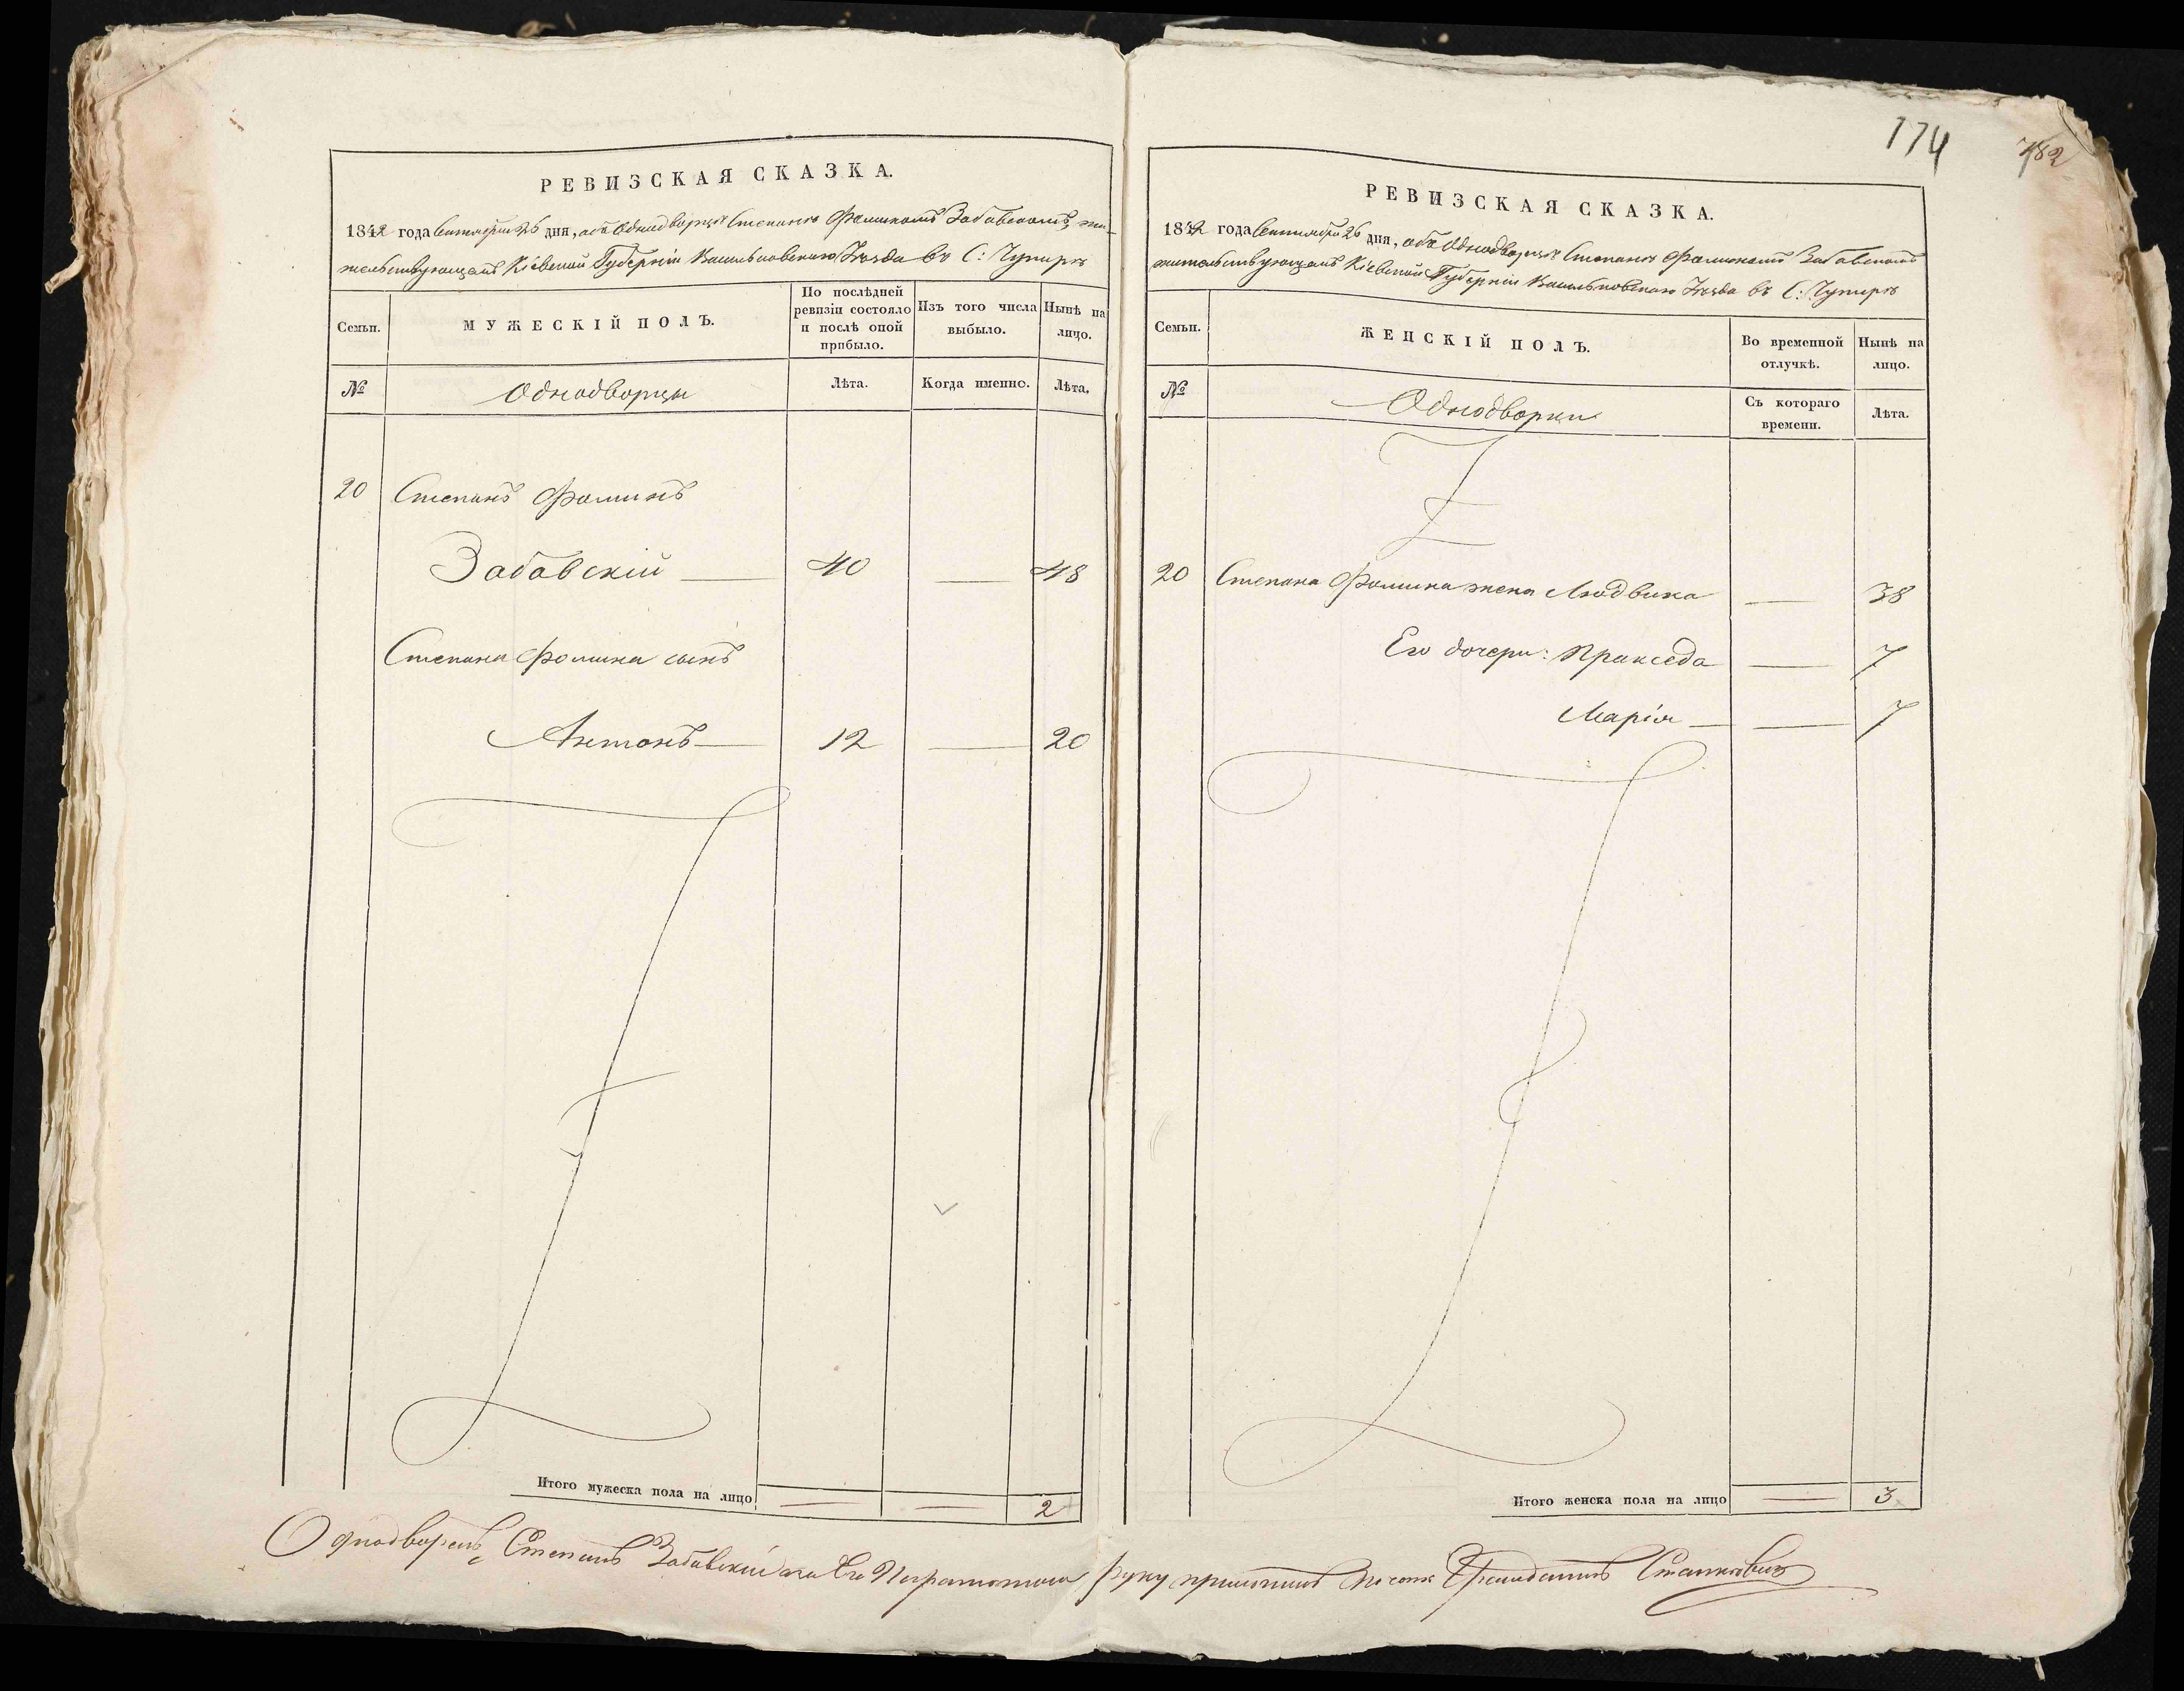 РЕВИЗСКАЯ СКАЗКА.
1842 года Сентября 26 дня, объ Однодворцѣ Степанѣ Фоминомъ Забавскомъ, жи-
тельствующемъ Кіевской Губерніи Васильковскаго Уѣзда въ С: Чупирѣ
Семьи.
МУЖЕСКІЙ ПОЛЪ.
По послѣдней ревизіи состояло и послѣ оной прибыло.
Изъ того числа выбыло.
Нынѣ на лицо.
№
Однодворцы
Лѣта.
Когда именно.
Лѣта.
20 Степанъ Фоминъ
Забавскій 40 48
Степана Фомина сынъ
Антонъ 12 20
Итого мужеска пола на лицо 2
174
782
РЕВИЗСКАЯ СКАЗКА.
1842 года Сентября 26 дня, объ Однодворцѣ Степанѣ Фоминомъ Забавскомъ
жительствующемъ Кіевской Губерніи Васильковскаго Уѣзда въ С: Чупирѣ
Семьи.
ЖЕНСКІЙ ПОЛЪ.
Во временной отлучкѣ.
Нынѣ на лицо.
№
Однодворки
Съ котораго времени.
Лѣта.
20 Степана Фомина жена Людвика 38
Его дочери: Пракседа 7
Марія 7
Итого женска пола на лицо 3
Однодворецъ Степанъ Забавскій а за Его Неграмотнаго руку приложилъ Станкевичъ